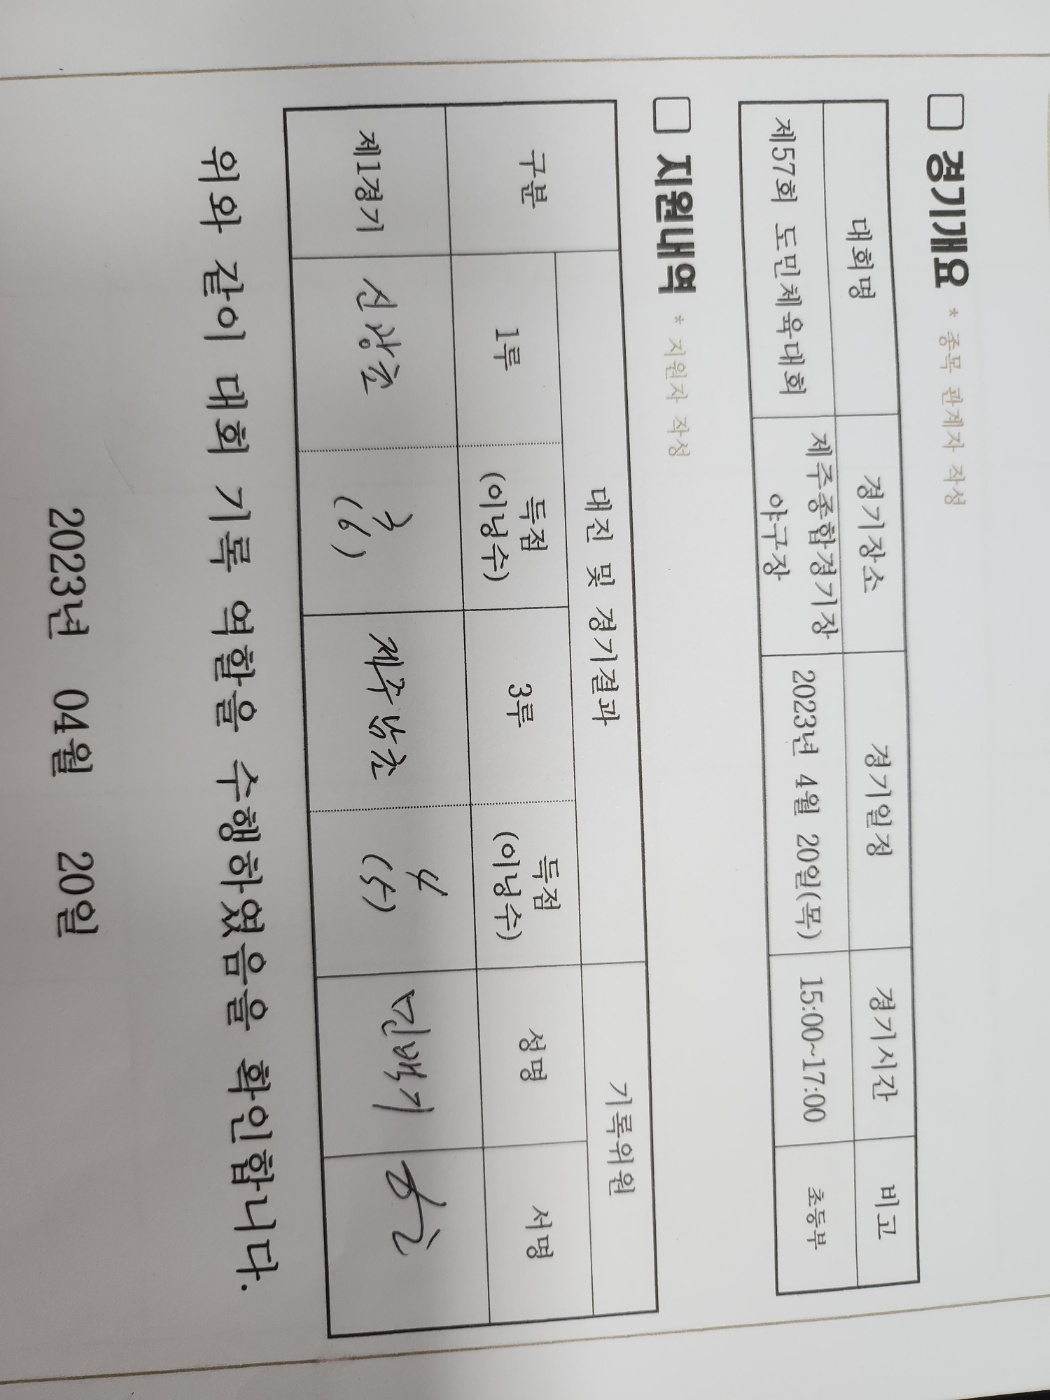 □ 경기개요 * 종목 관계자 작성
대회명 경기장소 경기일정 경기시간 비고
제57회 도민체육대회 제주종합경기장 야구장 2023년 4월 20일(목) 15:00~17:00 초등부
□ 지원내역 * 지원자 작성
구분 대진 및 경기결과 기록위원
1루 득점 (이닝수) 3루 득점 (이닝수) 성명 서명
제1경기 신광초 3 (6) 제주남초 4 (5) 민백기
위와 같이 대회 기록 역할을 수행하였음을 확인합니다.
2023년 04월 20일